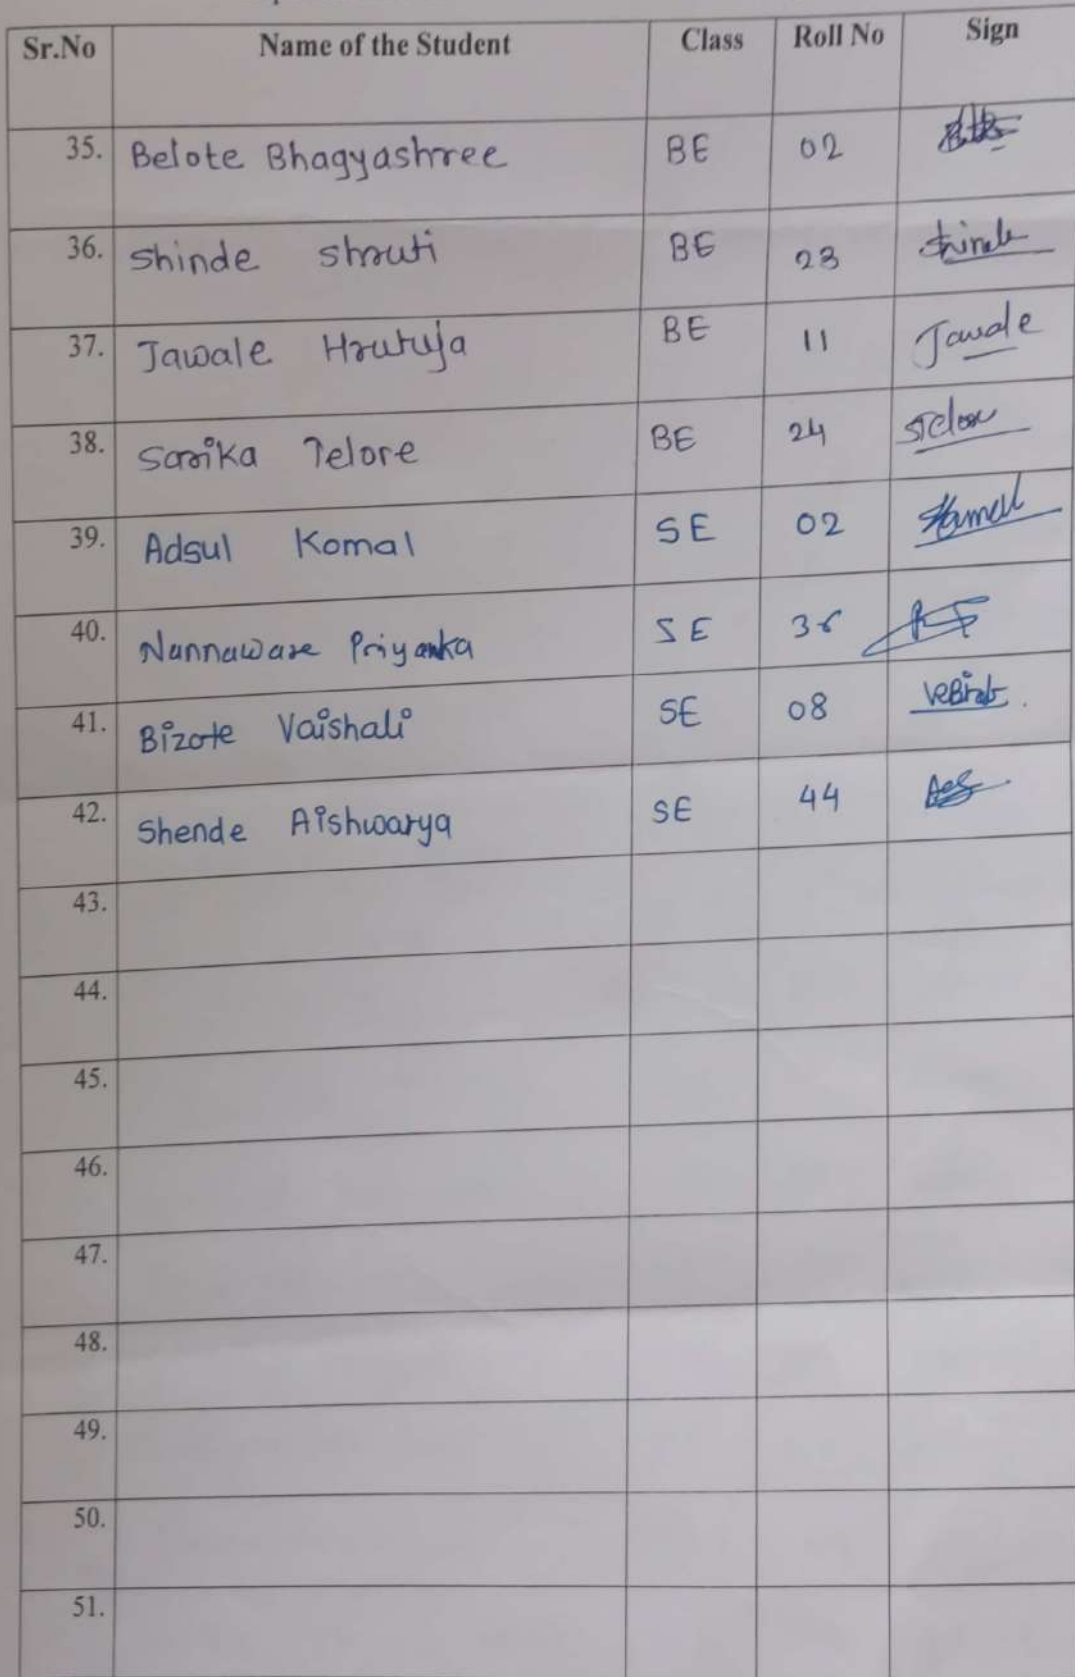 Sr.No Name of the Student Class Roll No Sign
35. Belote Bhagyashree BE 02
36. Shinde Shruti BE 23
37. Jawale Hrutuja BE 11 Jawale
38. Sarika Telore BE 24
39. Adsul Komal SE 02 Komal
40. Nannaware Priyanka SE 36
41. Bizote Vaishali SE 08
42. Shende Aishwarya SE 44
43.
44.
45.
46.
47.
48.
49.
50.
51.